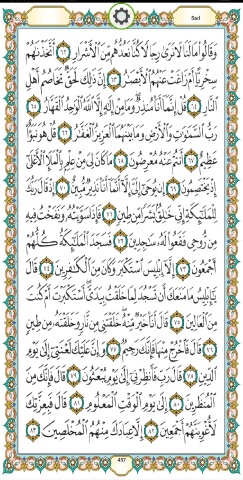 Sad
وَقَالُوا۟ مَا لَنَا لَا نَرَىٰ رِجَالًا كُنَّا نَعُدُّهُم مِّنَ ٱلْأَشْرَارِ ٦٢ أَتَّخَذْنَٰهُمْ
سِخْرِيًّا أَمْ زَاغَتْ عَنْهُمُ ٱلْأَبْصَٰرُ ٦٣ إِنَّ ذَٰلِكَ لَحَقٌّ تَخَاصُمُ أَهْلِ
ٱلنَّارِ ٦٤ قُلْ إِنَّمَآ أَنَا۠ مُنذِرٌ وَمَا مِنْ إِلَٰهٍ إِلَّا ٱللَّهُ ٱلْوَٰحِدُ ٱلْقَهَّارُ ٦٥
رَبُّ ٱلسَّمَٰوَٰتِ وَٱلْأَرْضِ وَمَا بَيْنَهُمَا ٱلْعَزِيزُ ٱلْغَفَّٰرُ ٦٦ قُلْ هُوَ نَبَؤٌا۟
عَظِيمٌ ٦٧ أَنتُمْ عَنْهُ مُعْرِضُونَ ٦٨ مَا كَانَ لِىَ مِنْ عِلْمٍۭ بِٱلْمَلَإِ ٱلْأَعْلَىٰٓ
إِذْ يَخْتَصِمُونَ ٦٩ إِن يُوحَىٰٓ إِلَىَّ إِلَّآ أَنَّمَآ أَنَا۠ نَذِيرٌ مُّبِينٌ ٧٠ إِذْ قَالَ رَبُّكَ
لِلْمَلَٰٓئِكَةِ إِنِّى خَٰلِقٌۢ بَشَرًا مِّن طِينٍ ٧١ فَإِذَا سَوَّيْتُهُۥ وَنَفَخْتُ فِيهِ
مِن رُّوحِى فَقَعُوا۟ لَهُۥ سَٰجِدِينَ ٧٢ فَسَجَدَ ٱلْمَلَٰٓئِكَةُ كُلُّهُمْ
أَجْمَعُونَ ٧٣ إِلَّآ إِبْلِيسَ ٱسْتَكْبَرَ وَكَانَ مِنَ ٱلْكَٰفِرِينَ ٧٤ قَالَ
يَٰٓإِبْلِيسُ مَا مَنَعَكَ أَن تَسْجُدَ لِمَا خَلَقْتُ بِيَدَىَّ أَسْتَكْبَرْتَ أَمْ كُنتَ
مِنَ ٱلْعَالِينَ ٧٥ قَالَ أَنَا۠ خَيْرٌ مِّنْهُ خَلَقْتَنِى مِن نَّارٍ وَخَلَقْتَهُۥ مِن طِينٍ
٧٦ قَالَ فَٱخْرُجْ مِنْهَا فَإِنَّكَ رَجِيمٌ ٧٧ وَإِنَّ عَلَيْكَ لَعْنَتِىٓ إِلَىٰ يَوْمِ
ٱلدِّينِ ٧٨ قَالَ رَبِّ فَأَنظِرْنِىٓ إِلَىٰ يَوْمِ يُبْعَثُونَ ٧٩ قَالَ فَإِنَّكَ مِنَ
ٱلْمُنظَرِينَ ٨٠ إِلَىٰ يَوْمِ ٱلْوَقْتِ ٱلْمَعْلُومِ ٨١ قَالَ فَبِعِزَّتِكَ
لَأُغْوِيَنَّهُمْ أَجْمَعِينَ ٨٢ إِلَّا عِبَادَكَ مِنْهُمُ ٱلْمُخْلَصِينَ ٨٣
457